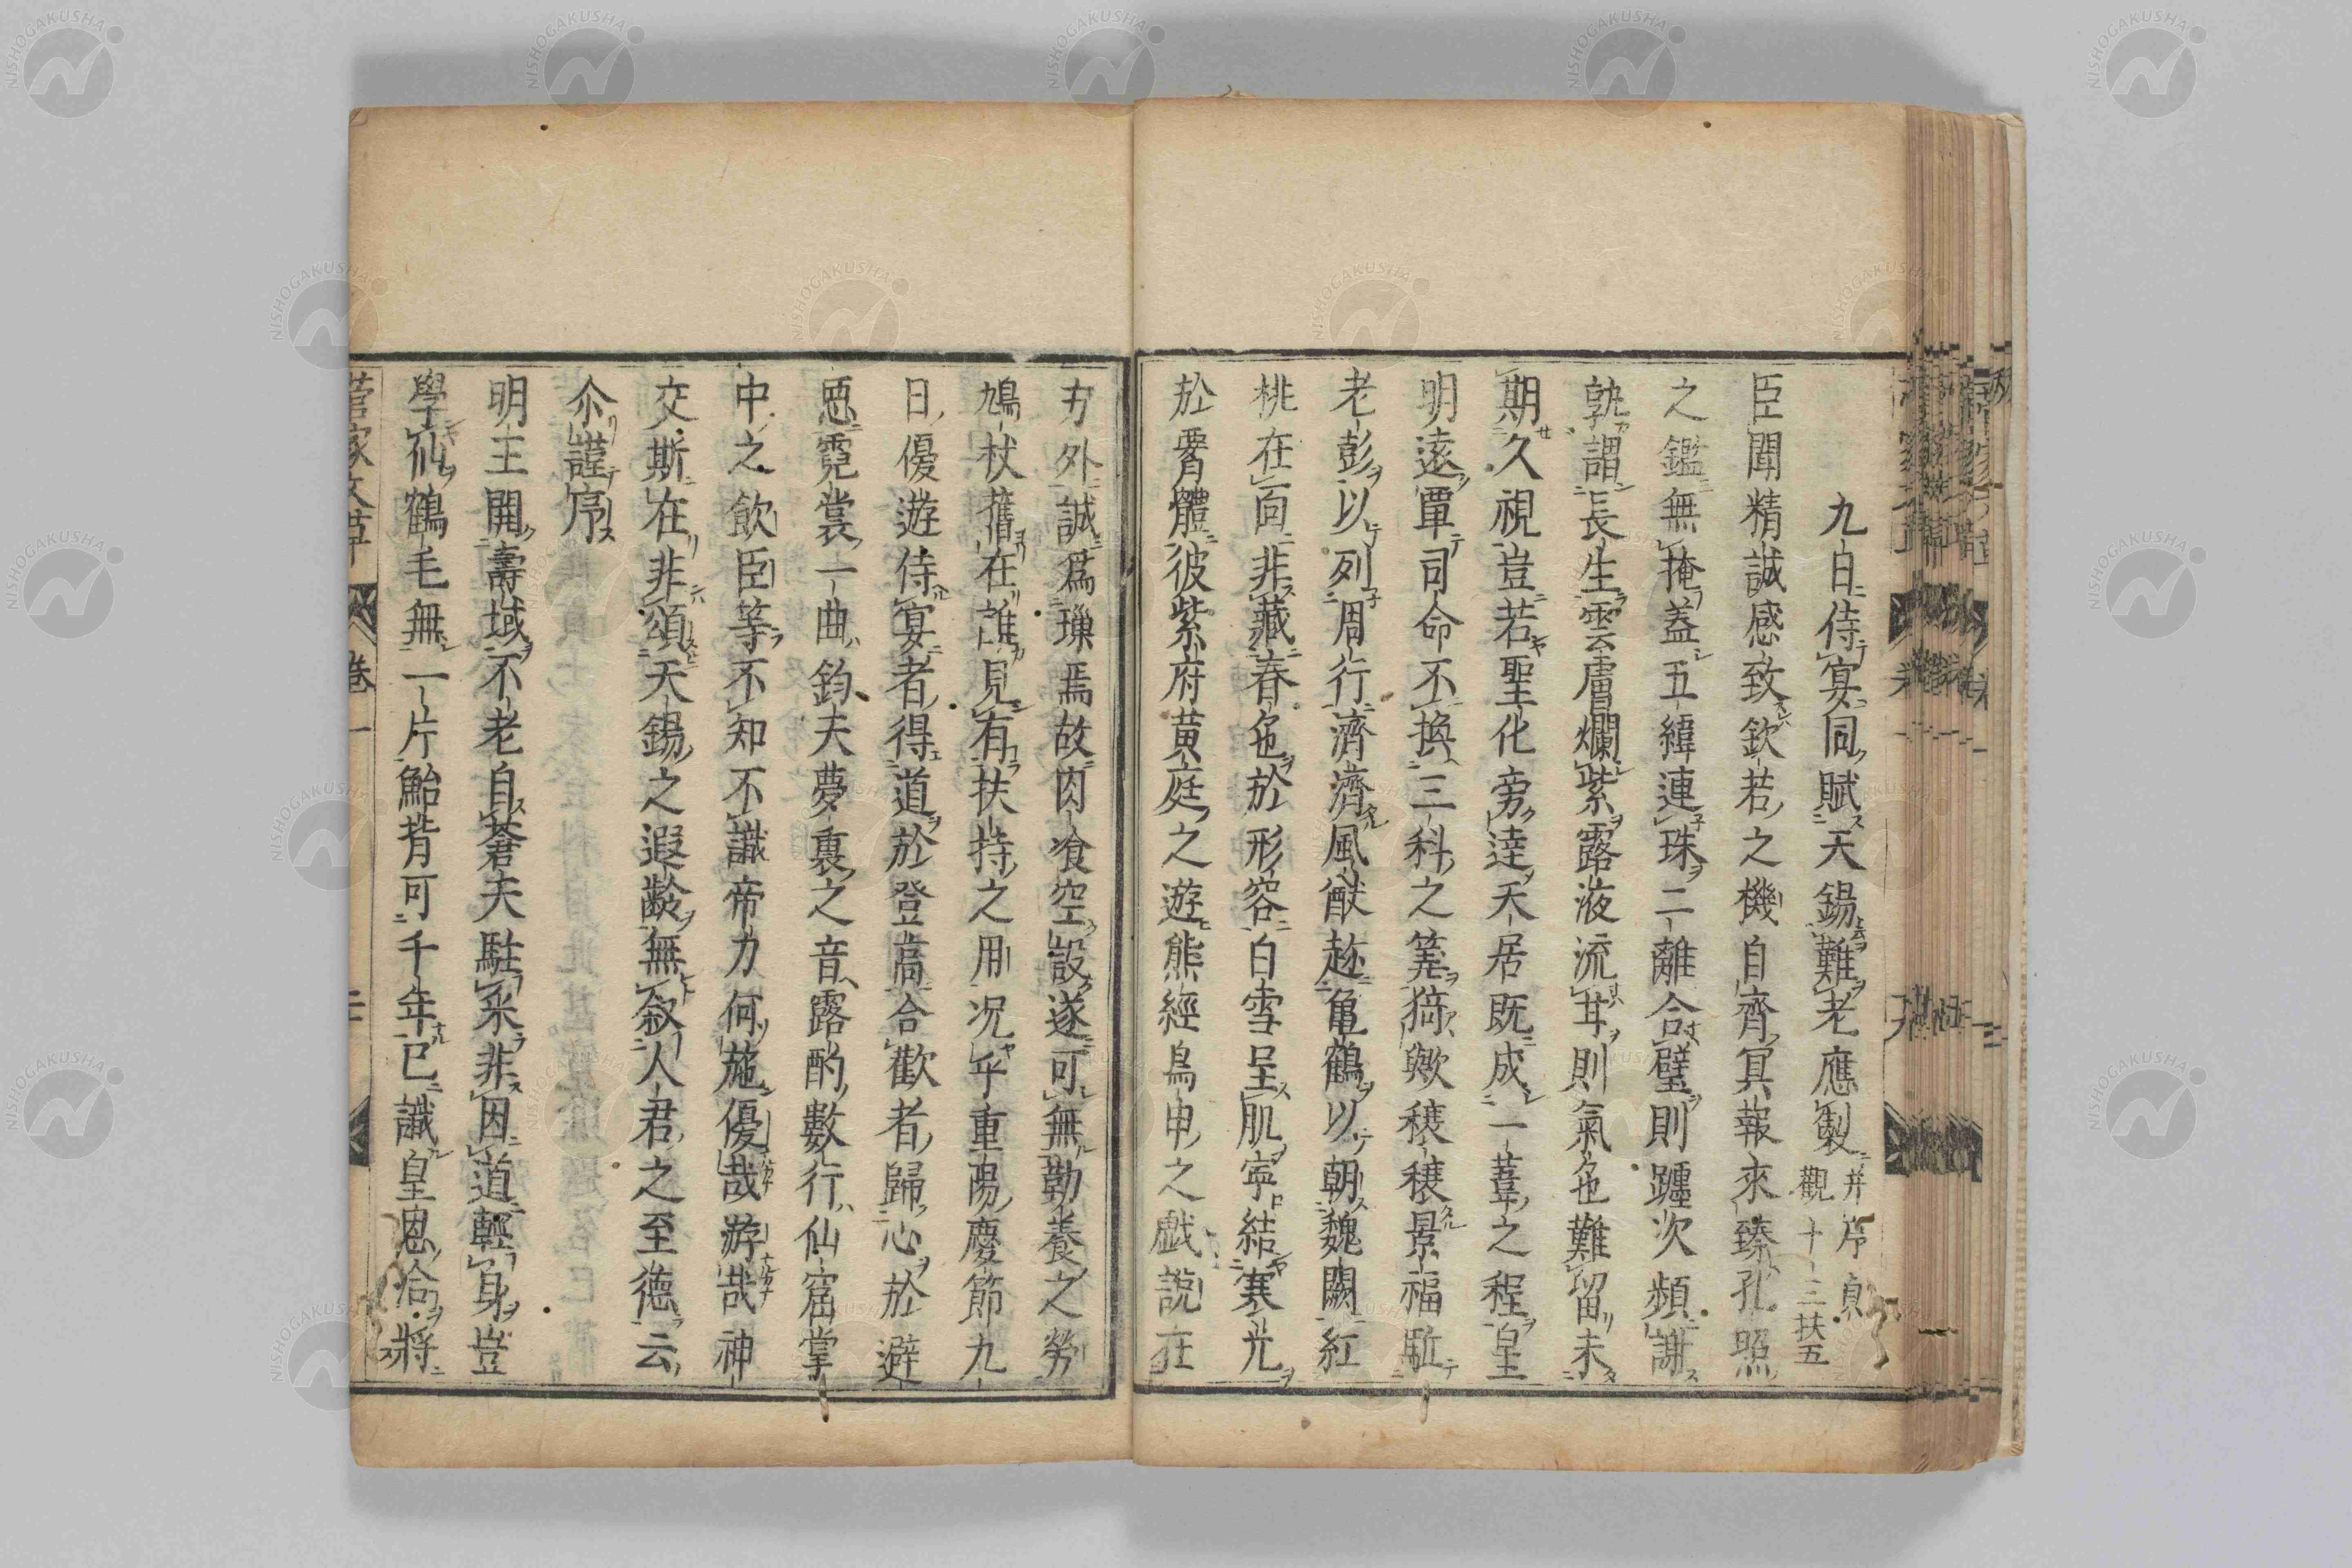 九日侍宴同賦天錫難老應製
并序貞
觀十三扶五
臣聞精誠感致欽若之機自齊冥報來臻孔照
之鑑無掩蓋五緯連珠二離合璧則躔次頻謝
孰謂長生雲膚爛紫露液流甘則氣色難留未
期久視豈若聖化旁達天居既成一葦之程皇
明遠覃司命不換三科之筭猗歟穰穰景福駈
老彭以列周行濟濟風猷趂亀鶴以朝魏闕紅
桃在面非藏春色於形容白雪呈肌寧結寒光
於膚體彼紫府黄庭之遊熊經鳥申之戯説在
方外誠爲璅焉故肉飡空設遂可無勤養之勞
鳩杖舊在誰見有扶持之用况乎重陽慶節九
日優遊侍宴者得道於登高合歡者歸心於避
惡霓裳一曲鈞夫夢裏之音露酌數行仙窟掌
中之飲臣等不知不識帝力何施優哉游哉神
交斯在非頌天錫之遐齡無叙人君之至德云
尒謹序
明王開壽域不老自蒼夫駐采非因道輕身豈
學仙鶴毛無一片鮐背可千年已識皇恩洽將
菅家文草 卷一